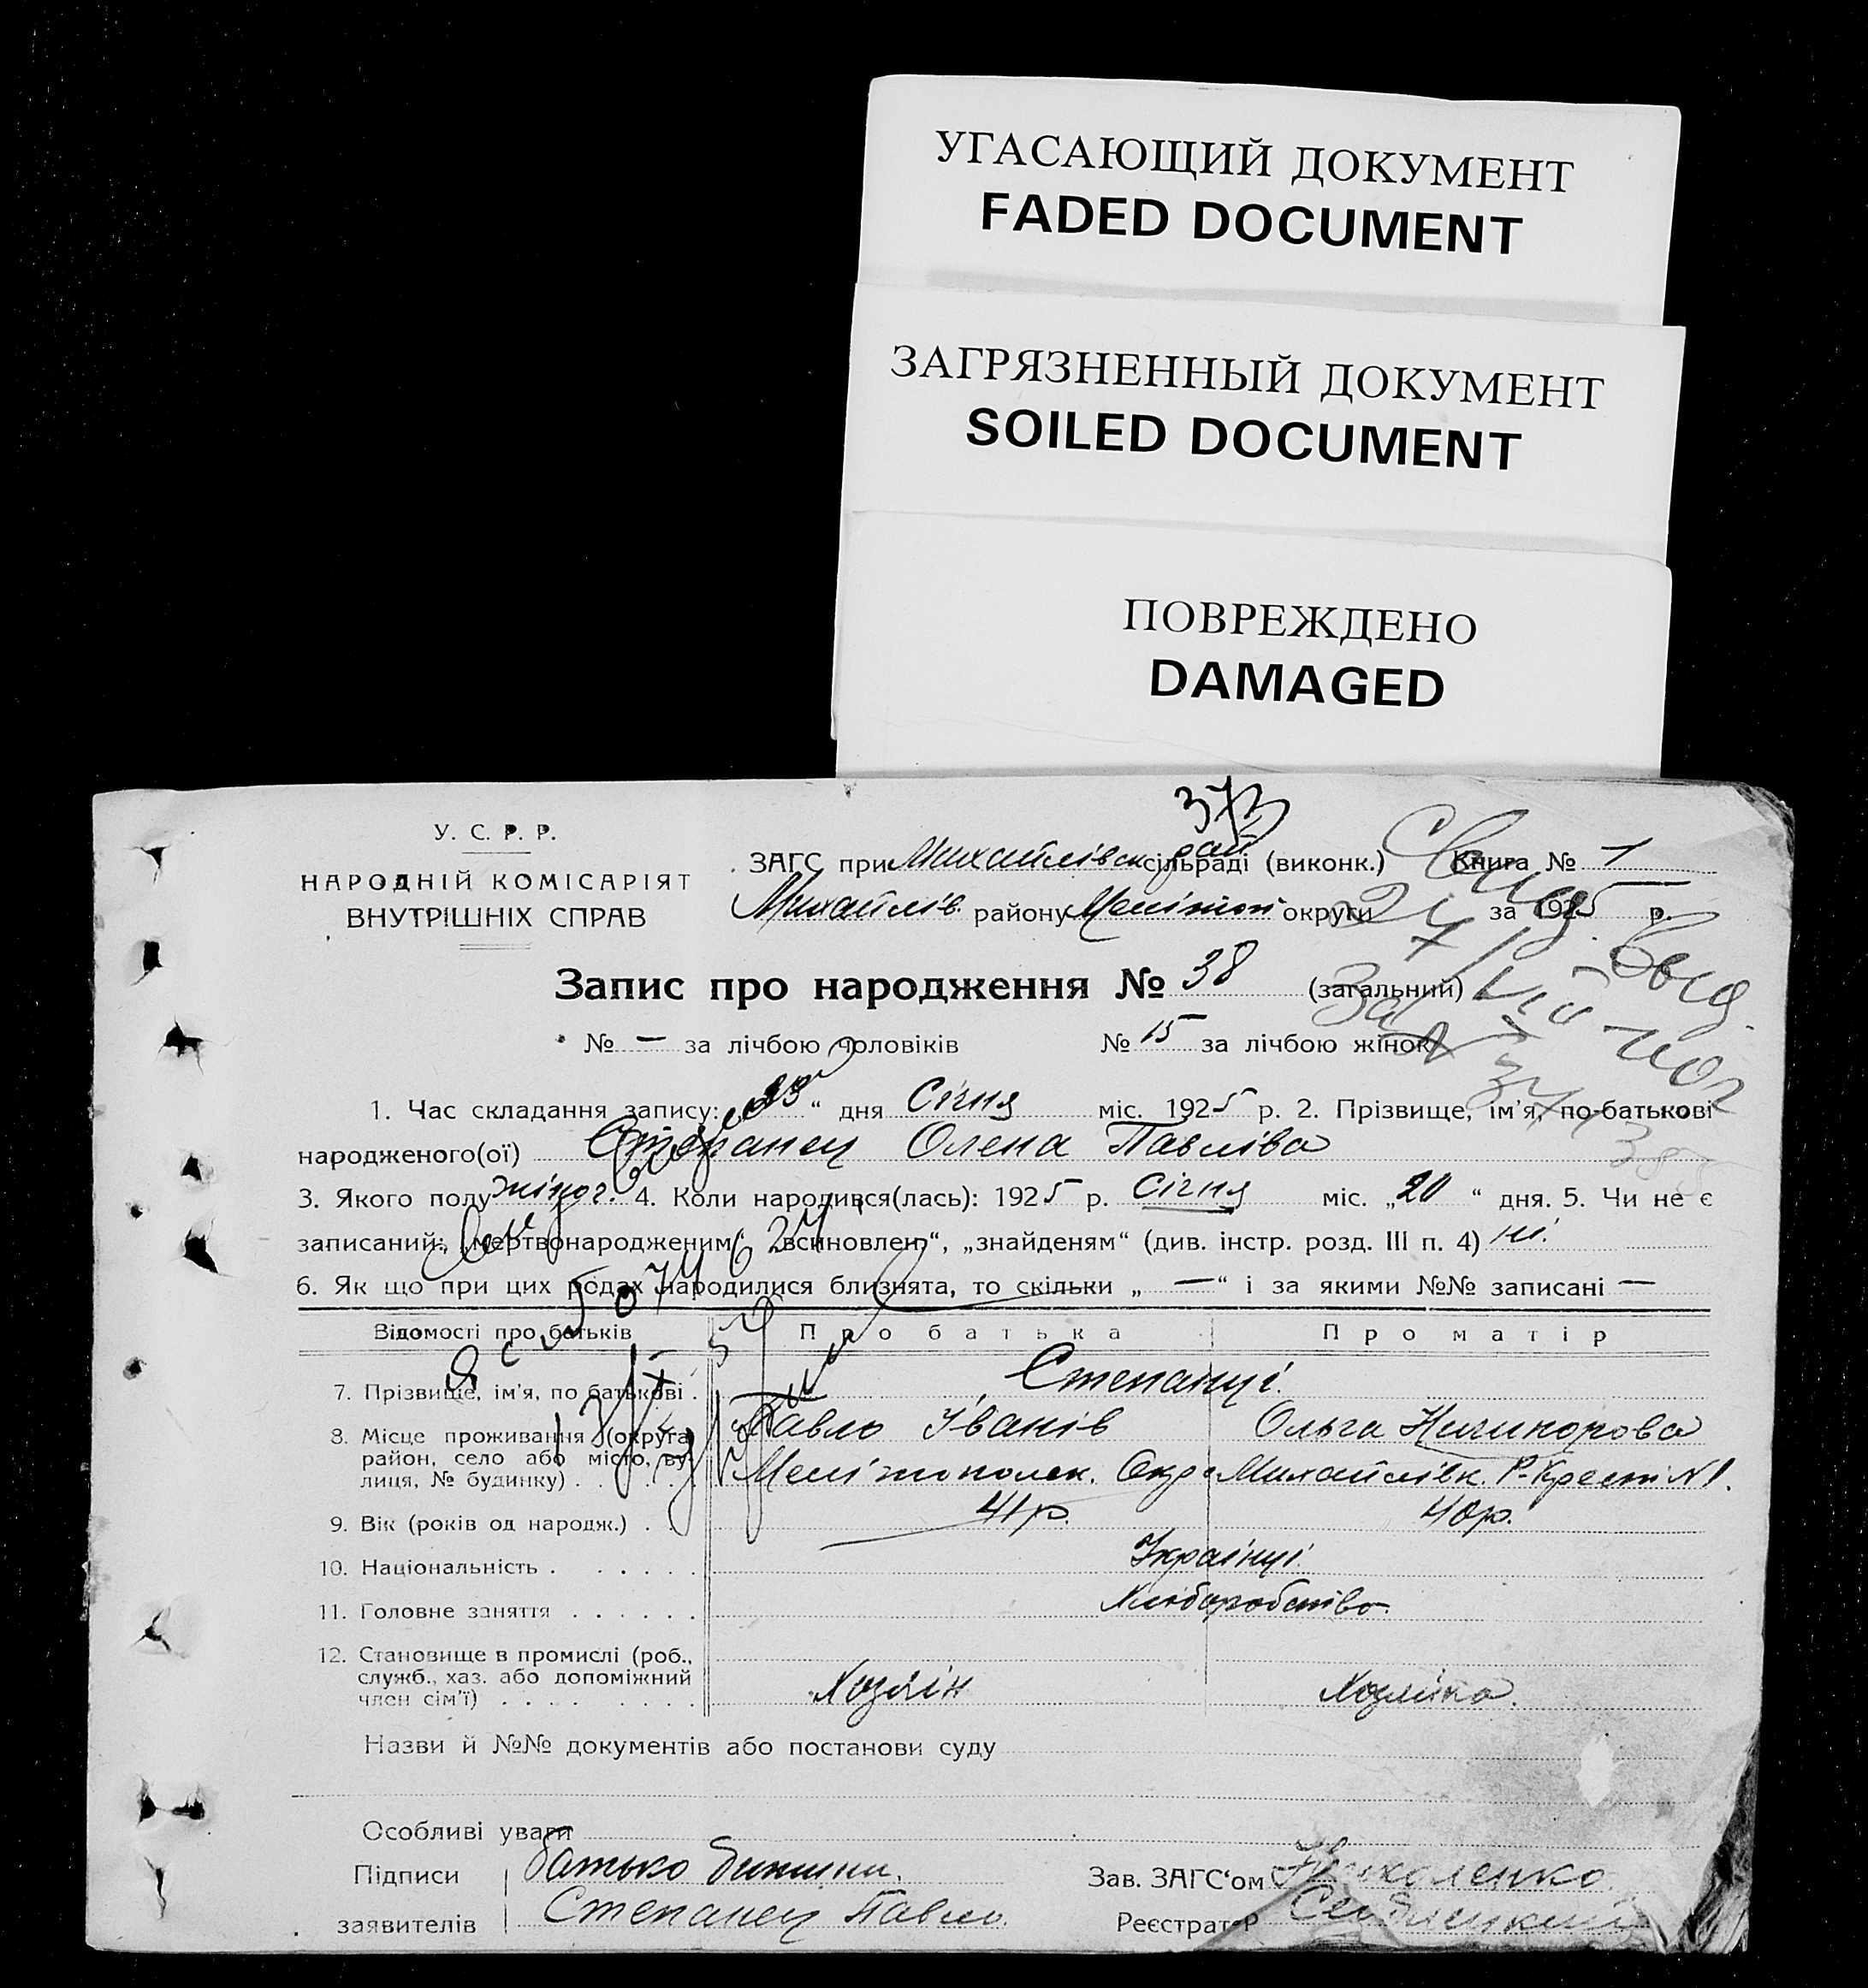 УГАСАЮЩИЙ ДОКУМЕНТ
FADED DOCUMENT
ЗАГРЯЗНЕННЫЙ ДОКУМЕНТ
SOILED DOCUMENT
ПОВРЕЖДЕНО
DAMAGED
373
У. С. Р. Р.
НАРОДНІЙ КОМІСАРІЯТ
ВНУТРІШНІХ СПРАВ
ЗАГС при Михайлівск сільраді (виконк.) Книга № 1
Михайлів. району Меліт округи за 1925 р.
Запис про народження № 38 (загальний)
№ — за лічбою чоловіків № 15 за лічбою жінок
1. Час складання запису: „23“ дня Січня міс. 1925 р. 2. Прізвище, ім'я, по-батькові
народженого(ої) Степанец Олена Павліва
3. Якого полу жіноч. 4. Коли народився(лась): 1925 р. Січня міс. „20“ дня. 5. Чи не є
записаний: „мертвонародженим“, „всиновлен“, „знайденям“ (див. інстр. розд. III п. 4) ні.
6. Як що при цих родах народилися близнята, то скільки „—“ і за якими №№ записані —
Відомості про батьків Про батька Про матір
7. Прізвище, ім'я, по батькові . Степанці.
Павло Іванів Ольга Ничипорова
8. Місце проживання (округа
район, село або місто, ву-
лиця, № будинку) . . . . . . Мелітопольск. Окр Михайлівк. Р- Крест N 1.
9. Вік (років од народж.) . . 41 р. 40 р.
10. Національність . . . . . . Українці.
11. Головне заняття . . . . . . Хліборобство.
12. Становище в промислі (роб.,
служб., хаз. або допоміжний
член сім'ї) . . . . . . . . Хозяін Хозяйка.
Назви й №№ документів або постанови суду
Особливі уваги
Підписи батько дитини.
заявителів Степанец Павло.
Зав. ЗАГС'ом
Реєстратор